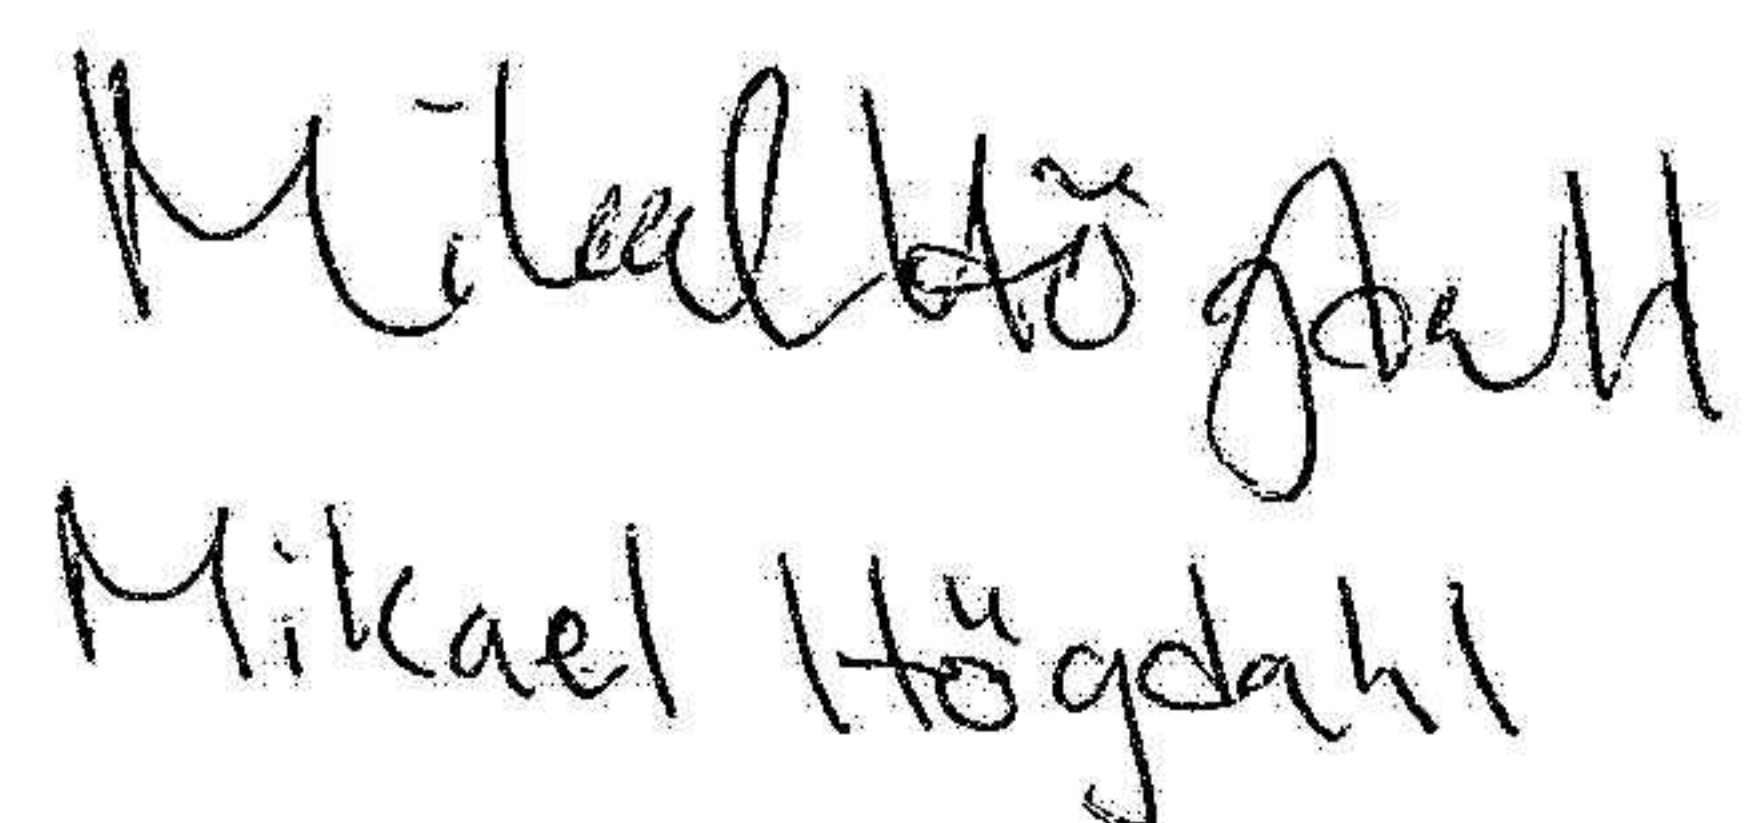 Mikael Högdahl
Mikael Högdahl